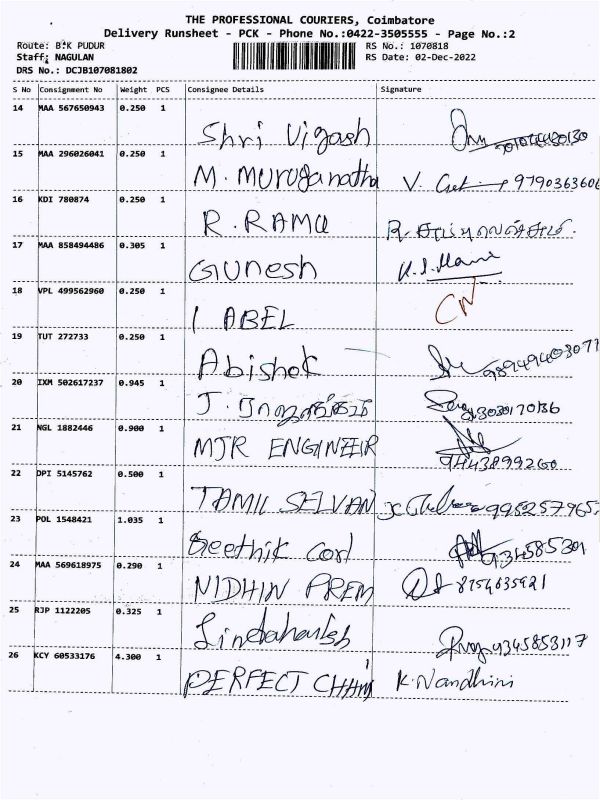 THE PROFESSIONAL COURIERS, Coimbatore
Delivery Runsheet - PCK - Phone No.:0422-3505555 - Page No.:2
Route: B.K PUDUR RS No.: 1070818
Staff: NAGULAN RS Date: 02-Dec-2022
DRS No.: DCJB107081802
S No Consignment No Weight PCS Consignee Details Signature
14 MAA 567650943 0.250 1
Shri Vigash
15 MAA 296026041 0.250 1
M. Muruganatha V. 9790363606
16 KDI 780874 0.250 1
R. RAMU R.
17 MAA 858494486 0.305 1
Gunesh
18 VPL 499562960 0.250 1
I ABEL CN
19 TUT 272733 0.250 1
Abishek 9894940307
20 IXM 502617237 0.945 1
J.
21 NGL 1882446 0.900 1
MJR ENGINEER 9443899260
22 DPI 5145762 0.500 1
TAMIL SELVAN 995257965
23 POL 1548421 1.035 1
Geethik Corl 934585301
24 MAA 569618975 0.290 1
NIDHIN PREM 8754635921
25 RJP 1122205 0.325 1
9345853117
26 KCY 60533176 4.300 1
PERFECT CHAM K. Nandhini